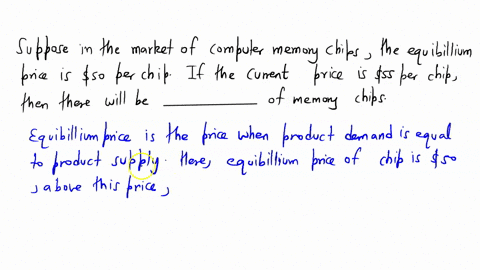 Suppose in the market of computer memory chips, the equibillium
price is $50 per chip. If the current price is $55 per chip,
then there will be __________ of memory chips.
Equibillium price is the price when product demand is equal
to product supply. Here, equibillium price of chip is $50
, above this price,